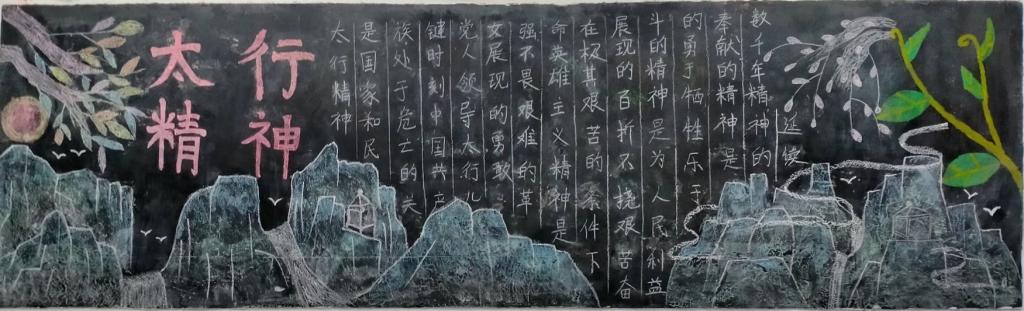 太行
精神
太行精神
是国家和民
族处于危亡的关
键时刻中国共产
党人领导太行儿
女展现的勇敢
强不畏艰难的革
命英雄主义精神是
在极其艰苦的条件下
展现的百折不挠艰苦奋
斗的精神是为人民利益
的勇于牺牲乐于
奉献的精神是
数千年精神的
延续